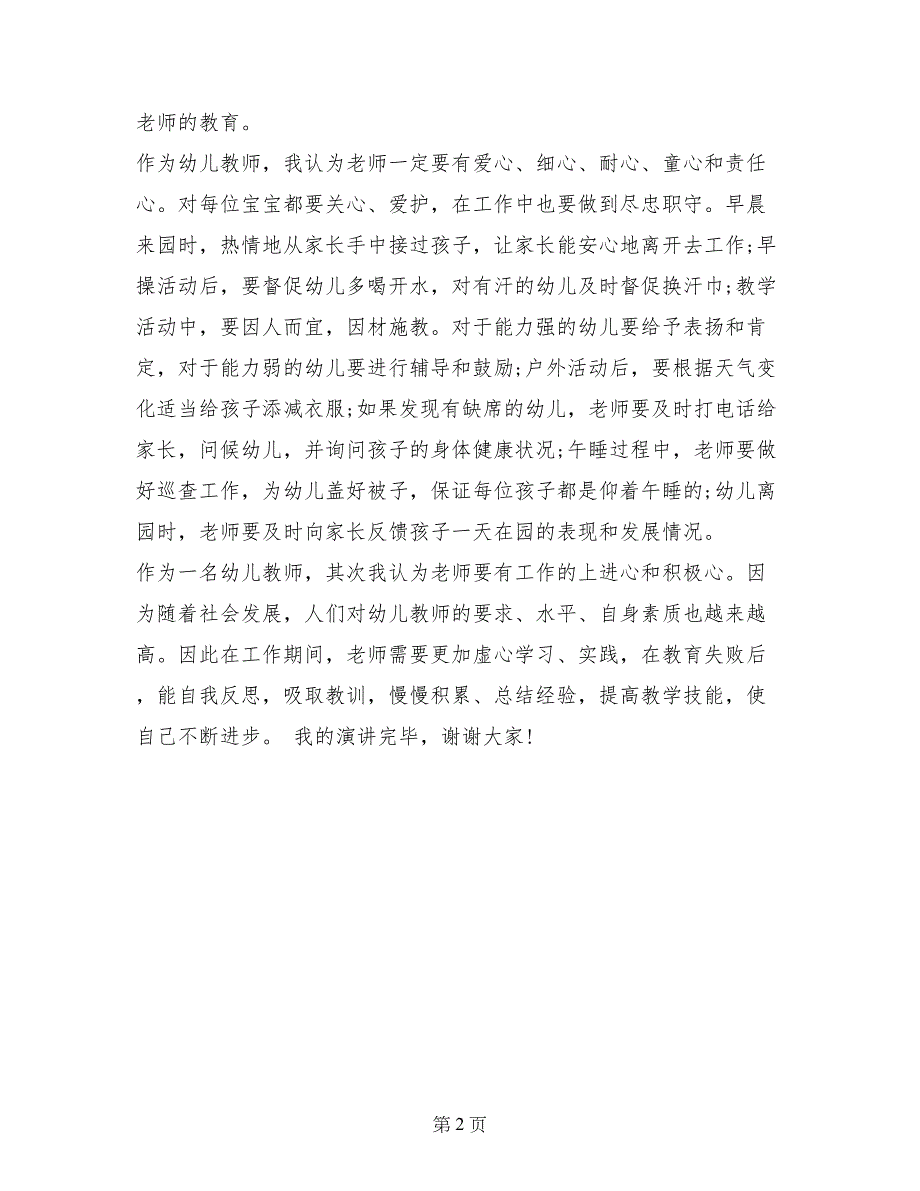 老师的教育。
作为幼儿教师，我认为老师一定要有爱心、细心、耐心、童心和责任
心。对每位宝宝都要关心、爱护，在工作中也要做到尽忠职守。早晨
来园时，热情地从家长手中接过孩子，让家长能安心地离开去工作;早
操活动后，要督促幼儿多喝开水，对有汗的幼儿及时督促换汗巾;教学
活动中，要因人而宜，因材施教。对于能力强的幼儿要给予表扬和肯
定，对于能力弱的幼儿要进行辅导和鼓励;户外活动后，要根据天气变
化适当给孩子添减衣服;如果发现有缺席的幼儿，老师要及时打电话给
家长，问候幼儿，并询问孩子的身体健康状况;午睡过程中，老师要做
好巡查工作，为幼儿盖好被子，保证每位孩子都是仰着午睡的;幼儿离
园时，老师要及时向家长反馈孩子一天在园的表现和发展情况。
作为一名幼儿教师，其次我认为老师要有工作的上进心和积极心。因
为随着社会发展，人们对幼儿教师的要求、水平、自身素质也越来越
高。因此在工作期间，老师需要更加虚心学习、实践，在教育失败后
，能自我反思，吸取教训，慢慢积累、总结经验，提高教学技能，使
自己不断进步。 我的演讲完毕，谢谢大家!
第 2 页